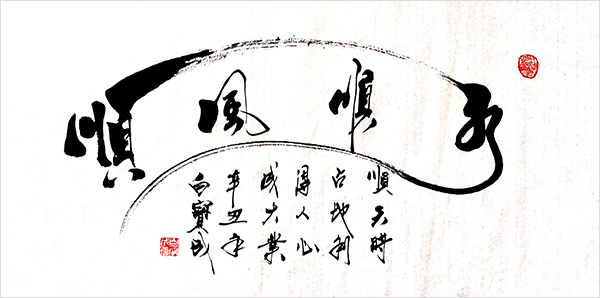 順風順水
順天時
占地利
得人心
成大業
辛丑年
白寶成